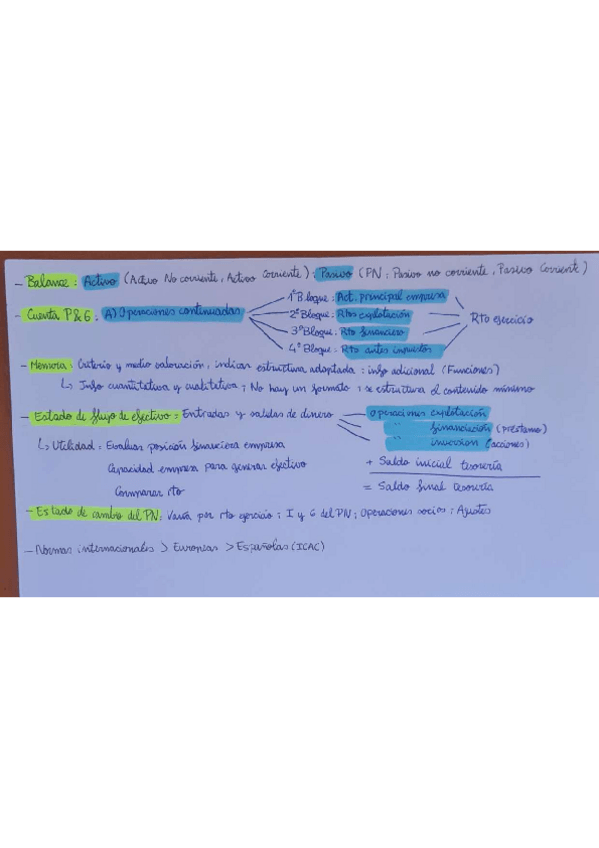 - Balance: Activo (Activo No corriente, Activo Corriente); Pasivo (PN; Pasivo no corriente, Pasivo Corriente)
- Cuenta P&G: A) Operaciones continuadas
1º Bloque: Act. principal empresa
2º Bloque: Rtos explotación
3º Bloque: Rto financiero
4º Bloque: Rto antes impuestos
Rto ejercicio
- Memoria: Criterio y medio valoración, indicar estructura adoptada; info adicional (Funciones)
↳ Info cuantitativa y cualitativa; No hay un formato; se estructura el contenido mínimo
- Estado de flujo de efectivo = Entradas y salidas de dinero
operaciones explotación
" financiación (préstamo)
" inversión (acciones)
+ Saldo inicial tesorería
= Saldo final tesorería
↳ Utilidad: Evaluar posición financiera empresa
Capacidad empresa para generar efectivo
Comparar rto
- Estado de cambio del PN; Varía por rto ejercicio; I y G del PN; Operaciones socios; Ajustes
- Normas internacionales > Europeas > Españolas (ICAC)